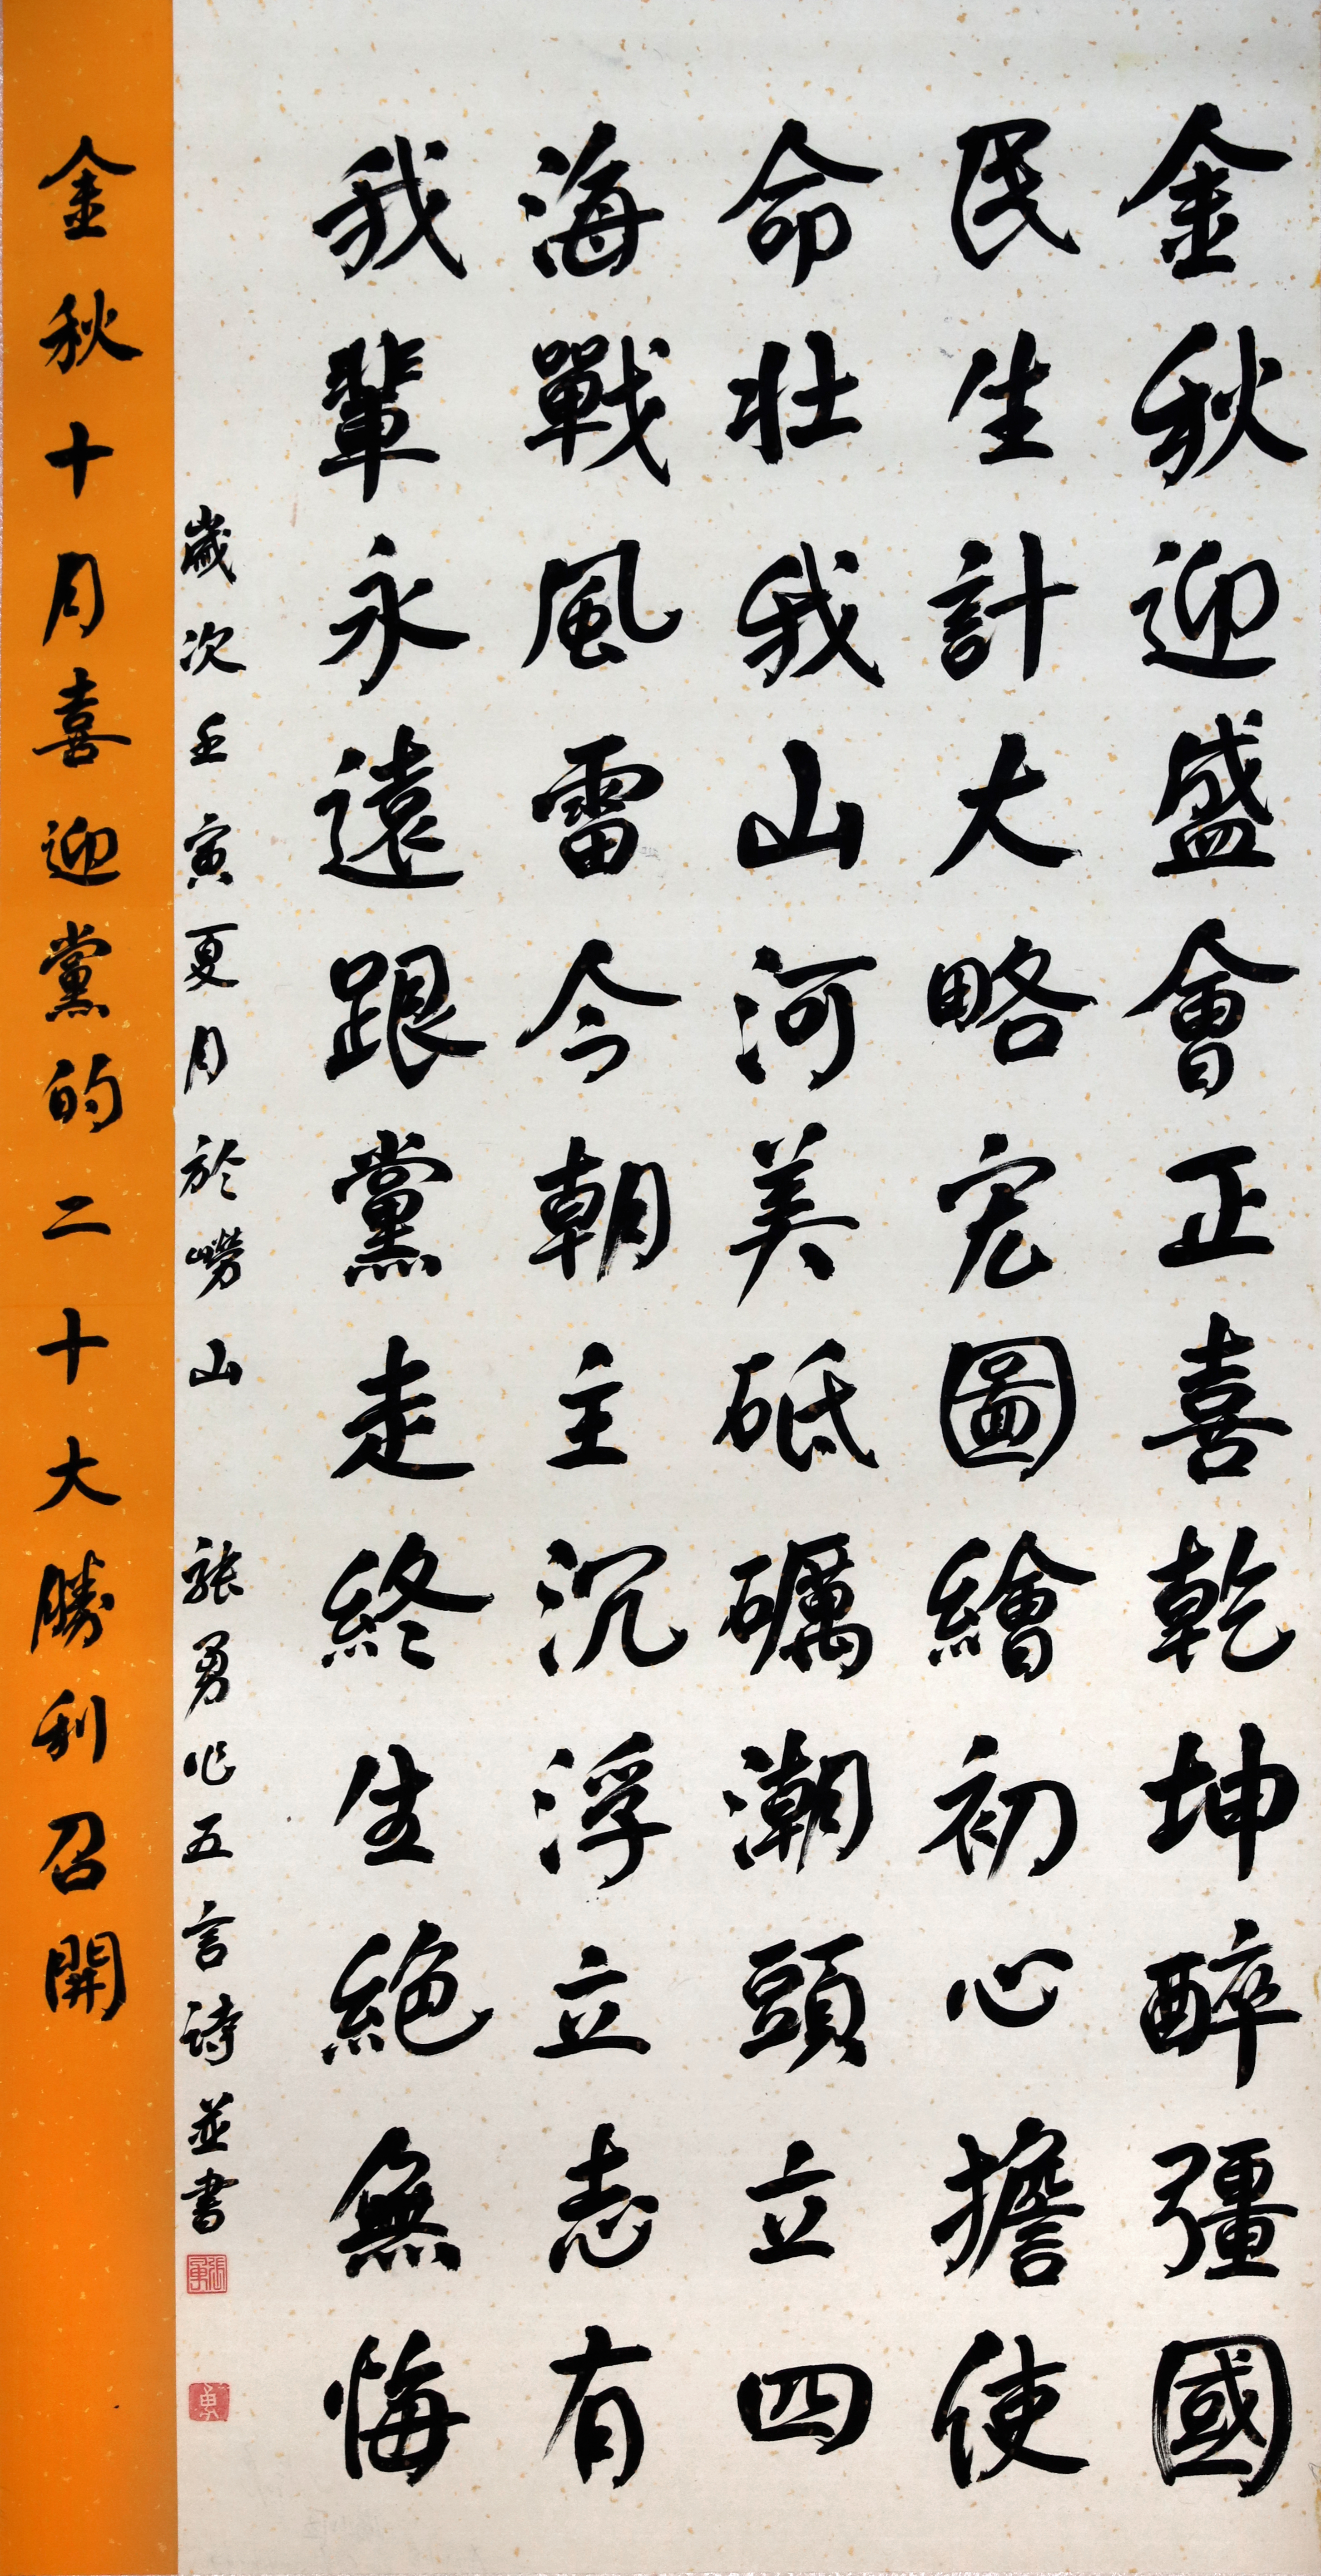 金秋迎盛會正喜乾坤醉彊國
民生計大略宏圖繪初心擔使
命壯我山河美砥礪潮頭立四
海戰風雷今朝主沉浮立志有
我輩永遠跟黨走終生絕無悔
歲次壬寅夏月於嶗山 張勇作五言詩並書
張勇
勇
金秋十月喜迎黨的二十大勝利召開